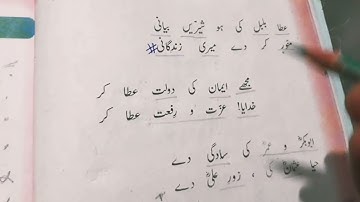 عطا بلبل کی ہو شیریں بیانی
منور کر دے میری زندگانی #
مجھے ایمان کی دولت عطا کر
خدایا! عزت و رفعت عطا کر
ابوبکرؓ و عمرؓ کی سادگی دے
حیا عثمانؓ کی ، زورِ علیؓ دے